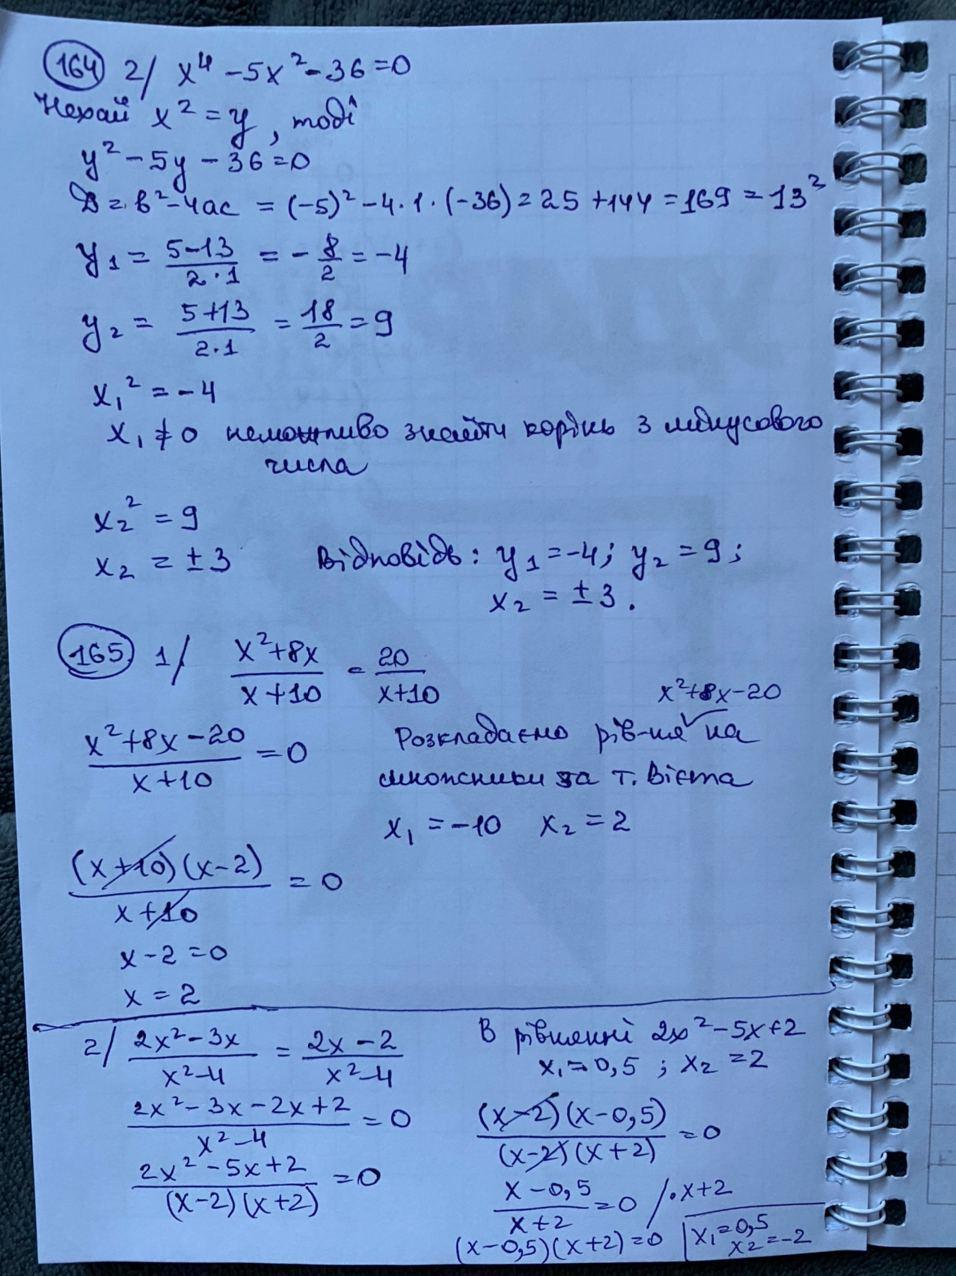 164 2/ x⁴ - 5x² - 36 = 0
Нехай x² = y, тоді
y² - 5y - 36 = 0
D = b² - 4ac = (-5)² - 4·1·(-36) = 25 + 144 = 169 = 13²
y₁ = (5-13)/(2·1) = -8/2 = -4
y₂ = (5+13)/(2·1) = 18/2 = 9
x₁² = -4
x₁ ≠ 0 неможливо знайти корінь з мінусового
числа
x₂² = 9
x₂ = ±3 Відповідь: y₁ = -4; y₂ = 9;
x₂ = ±3.
165 1/ (x²+8x)/(x+10) = 20/(x+10)
x²+8x-20
(x²+8x-20)/(x+10) = 0
Розкладаємо рів-ня на
множники за т. Вієта
x₁ = -10 x₂ = 2
(x+10)(x-2)/(x+10) = 0
x-2 = 0
x = 2
2/ (2x²-3x)/(x²-4) = (2x-2)/(x²-4)
(2x²-3x-2x+2)/(x²-4) = 0
(2x²-5x+2)/((x-2)(x+2)) = 0
В рівненні 2x²-5x+2
x₁ = 0,5 ; x₂ = 2
(x-2)(x-0,5)/((x-2)(x+2)) = 0
(x-0,5)/(x+2) = 0 /·x+2
(x-0,5)(x+2) = 0
x₁ = 0,5
x₂ = -2